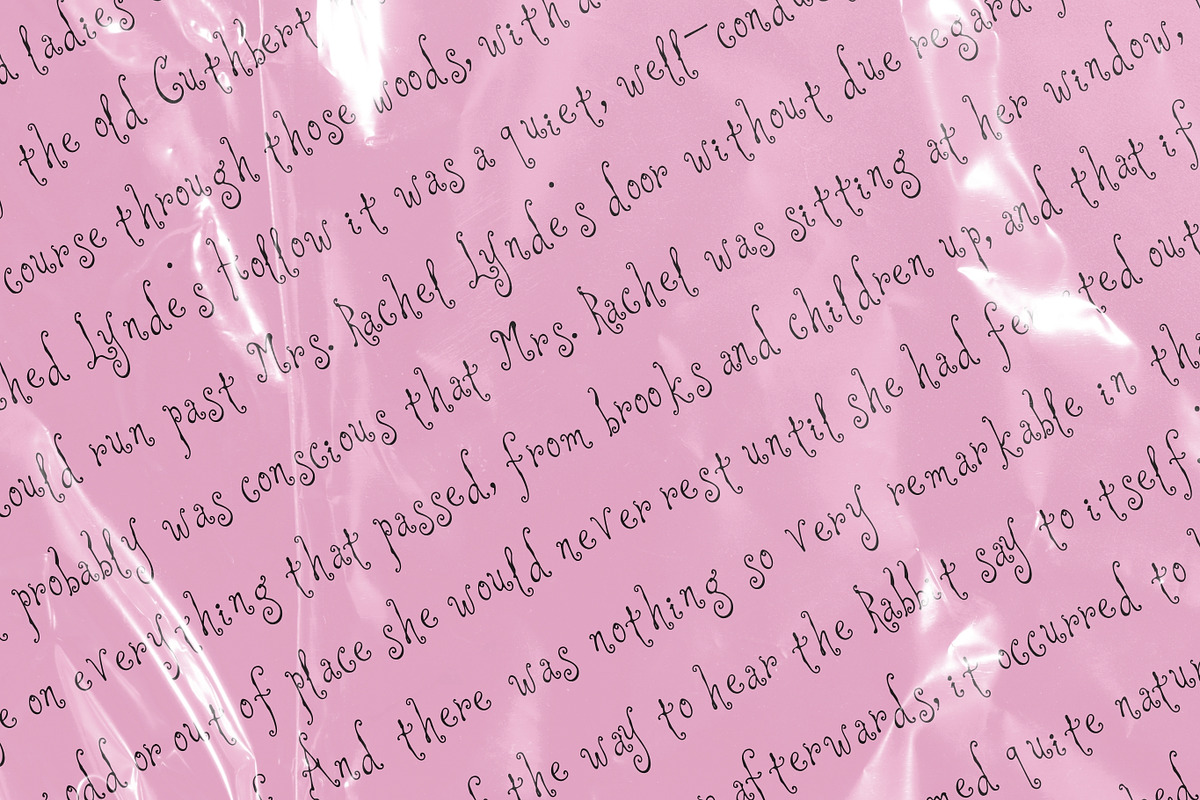 ladies
the old Cuthbert
course through those woods, with
Lynde's Hollow it was a quiet,
could run past Mrs. Rachel Lynde's door without due regard
probably was conscious that Mrs. Rachel was sitting at her window,
on everything that passed, from brooks and children up, and that if
odd or out of place she would never rest until she had out
And there was nothing so very remarkable in
the way to hear the Rabbit say to itself
afterwards, it occurred to
quite